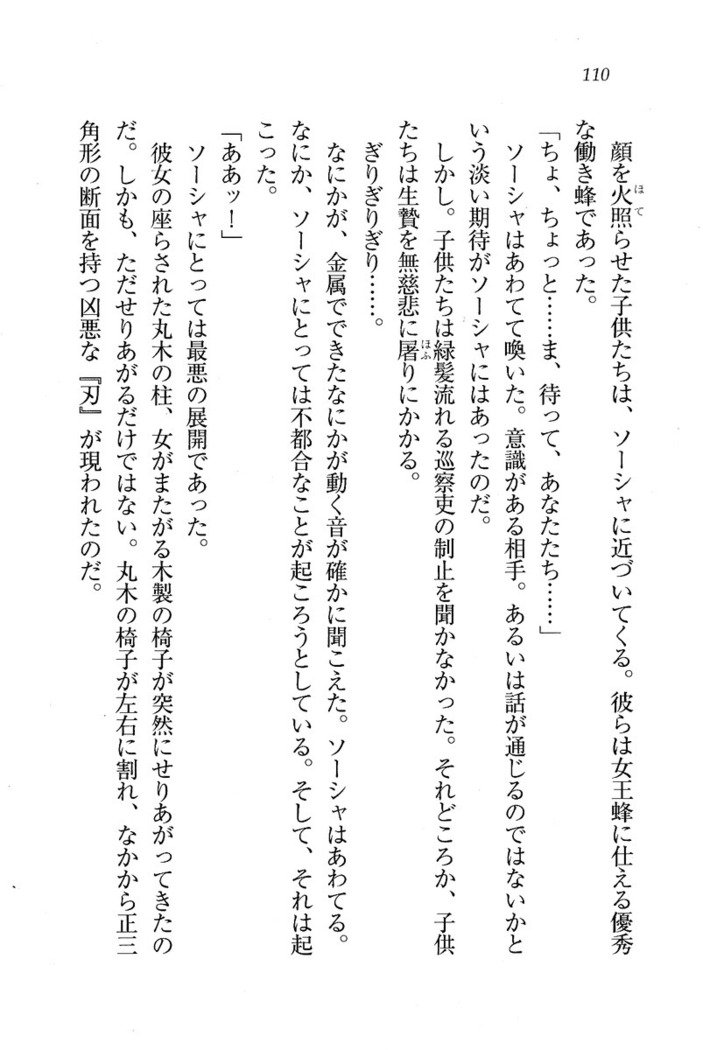 110
顔を火照らせた子供たちは、ソーシャに近づいてくる。彼らは女王蜂に仕える優秀
ほて
な働き蜂であった。
「ちょ、ちょっと……ま、待って、あなたたち……」
ソーシャはあわてて喚いた。意識がある相手。あるいは話が通じるのではないかと
いう淡い期待がソーシャにはあったのだ。
しかし。子供たちは緑髪流れる巡察吏の制止を聞かなかった。それどころか、子供
たちは生贄を無慈悲に屠りにかかる。
ほふ
ぎりぎりぎり……。
なにかが、金属でできたなにかが動く音が確かに聞こえた。ソーシャはあわてる。
なにか、ソーシャにとっては不都合なことが起ころうとしている。そして、それは起
こった。
「ああッ！」
ソーシャにとっては最悪の展開であった。
彼女の座らされた丸木の柱、女がまたがる木製の椅子が突然にせりあがってきたの
だ。しかも、ただせりあがるだけではない。丸木の椅子が左右に割れ、なかから正三
角形の断面を持つ凶悪な『刃』が現われたのだ。